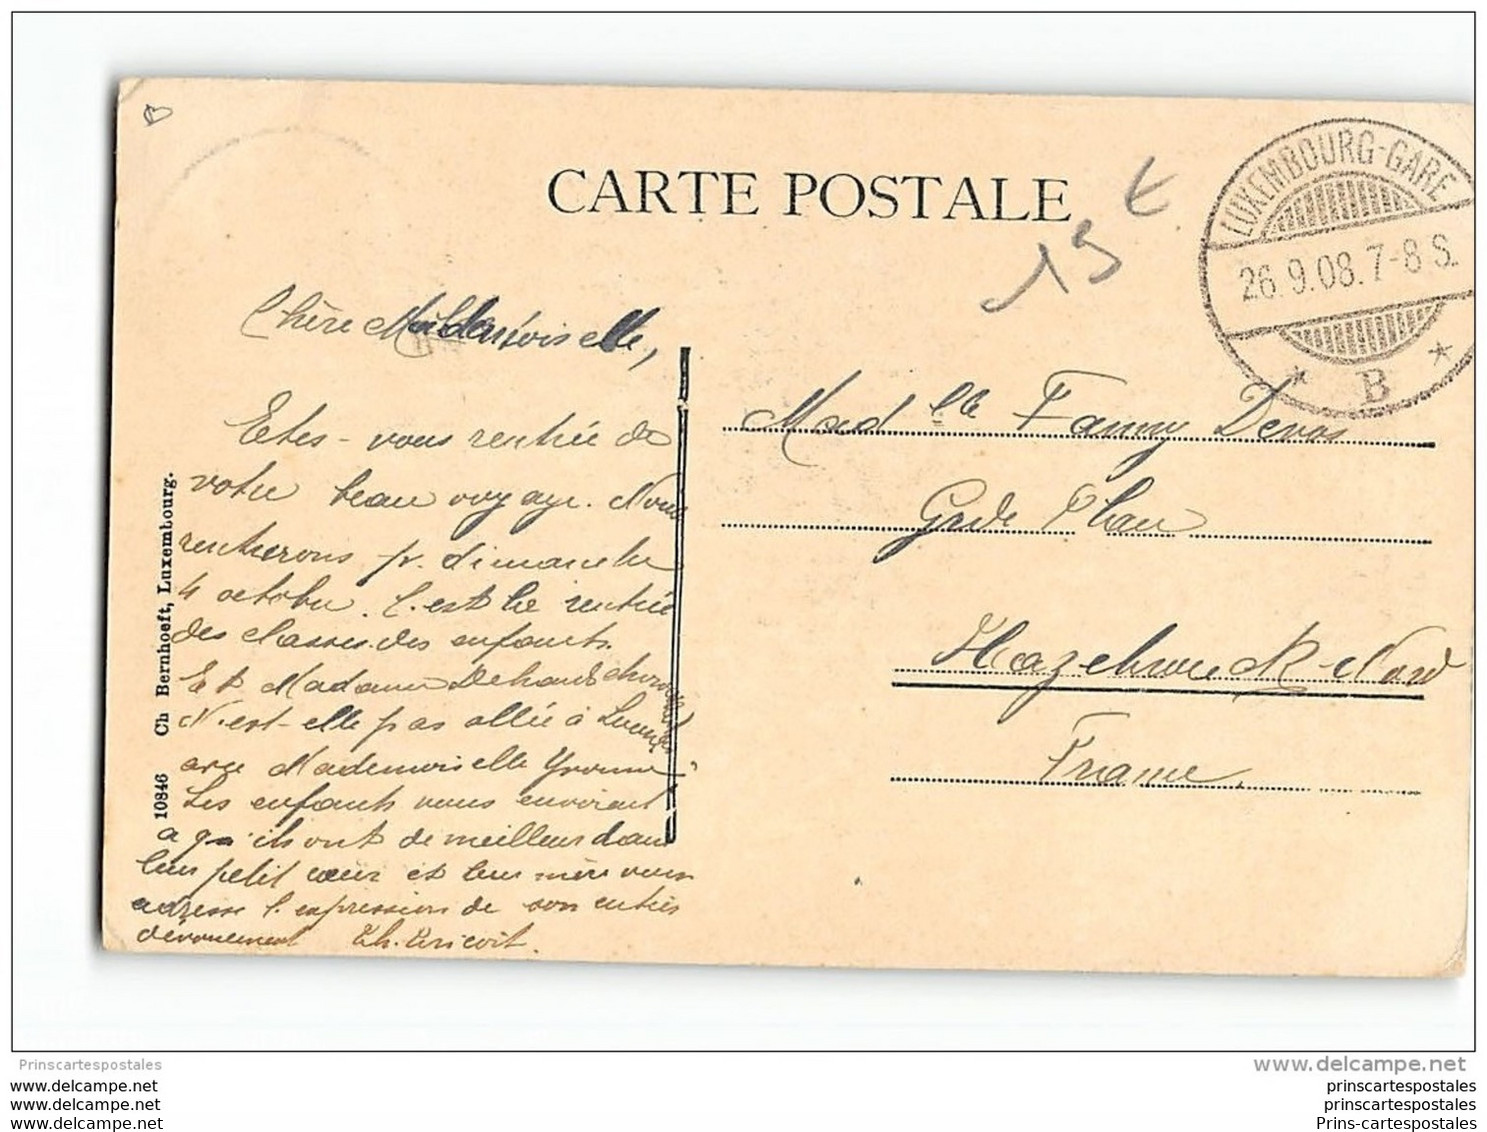 CARTE POSTALE
LUXEMBOURG-GARE
26.9.08.7-8 S.
* B *
19 €
Chère Mademoiselle,
Etes-vous rentrée de
votre beau voyage. Nous
rentrerons pr. dimanche
4 octobre. C'est la rentrée
des classes des enfants.
Et Madame
N'est-elle pas allée à
avec Mademoiselle Yvonne
Les enfants vous envoient
a qu'ils ont de meilleur dans
leur petit cœur et leur mère vous
adresse l'expression de son entier
dévouement Th.
Mad lle Fanny Devos
Gnde Place
Hazebrouck Nord
France
10846 Ch Bernhoeft, Luxembourg.
Prinscartespostales
www.delcampe.net
www.delcampe.net
www.delcampe.net
www.delcampe.net
prinscartespostales
prinscartespostales
Prins-cartespostales